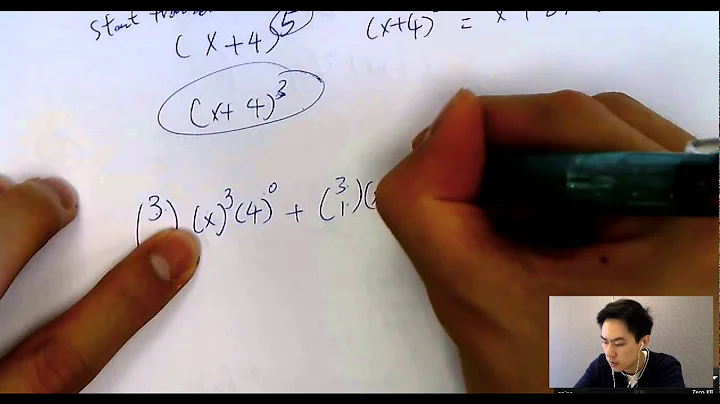 Start
(x+4)^5
(x+4) = x
(x+4)^3
(3) (x)^3 (4)^0 + (3 1)(x